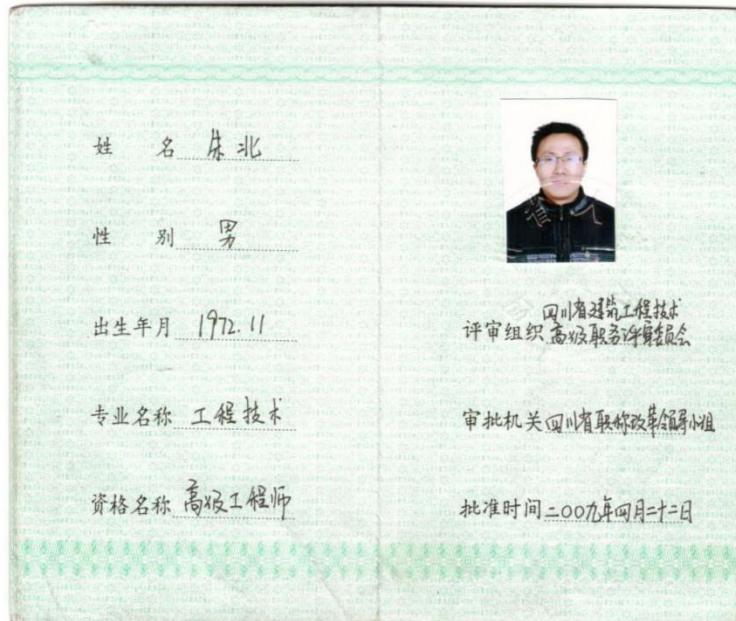 姓 名 朱北
性 别 男
出生年月 1972.11
专业名称 工程技术
资格名称 高级工程师
评审组织 四川省建筑工程技术
高级职务评审委员会
审批机关 四川省职称改革领导小组
批准时间 二00九年四月二十二日